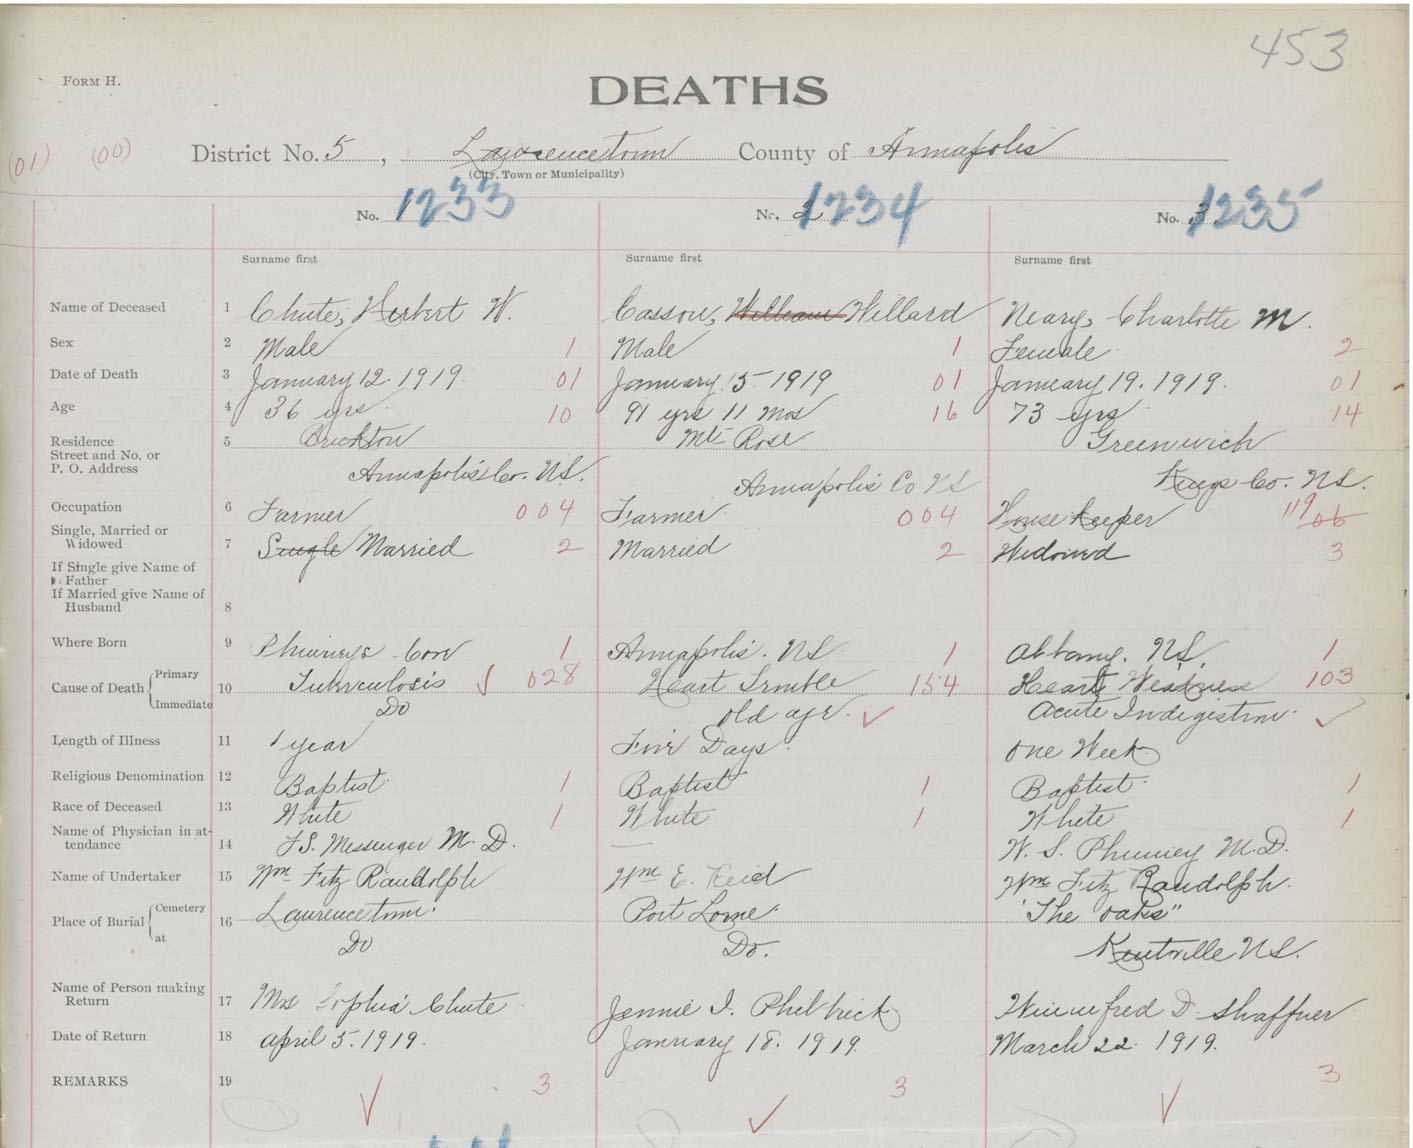 453
FORM H.
DEATHS
(01) (00) District No. 5, Lawrencetown County of Annapolis
(City, Town or Municipality)
No. 1233 No. 2 1234 No. 3 1235
Surname first Surname first Surname first
Name of Deceased 1 Chute, Herbert W. Casson, William Willard Neary, Charlotte M.
Sex 2 Male 1 Male 1 Female 2
Date of Death 3 January 12. 1919. 01 January 15 1919 01 January 19. 1919. 01
Age 4 36 yrs. 10 91 yrs 11 mos 16 73 yrs 14
Residence 5 Brickton Mt Rose Greenwich
Street and No. or
P. O. Address Annapolis Co. N.S. Annapolis Co NS Kings Co. N.S.
Occupation 6 Farmer 004 Farmer 004 House keeper 119 06
Single, Married or
Widowed 7 Single Married 2 Married 2 Widowed 3
If Single give Name of
Father
If Married give Name of
Husband 8
Where Born 9 Phinneys Cove 1 Annapolis. NS 1 Albany. N.S. 1
Cause of Death Primary 10 Tuberculosis 028 Heart Trouble 154 Heart Weakness 103
Immediate Do old age. Acute Indigestion.
Length of Illness 11 1 year Five Days. one Week
Religious Denomination 12 Baptist 1 Baptist 1 Baptist 1
Race of Deceased 13 White 1 White 1 White 1
Name of Physician in at-
tendance 14 F.S. Messenger M. D. W. S. Phinney M.D.
Name of Undertaker 15 Wm Fitz Randolph Wm E. Reid Wm Fitz Randolph.
Place of Burial Cemetery 16 Lawrencetown. Port Lorne. "The Oaks"
at Do Do. Kentville N.S.
Name of Person making
Return 17 Mrs Sophia Chute Jennie I. Philbrick Winnifred D. Shaffner
Date of Return 18 April 5. 1919. January 18. 1919. March 22. 1919.
REMARKS 19 3 3 3